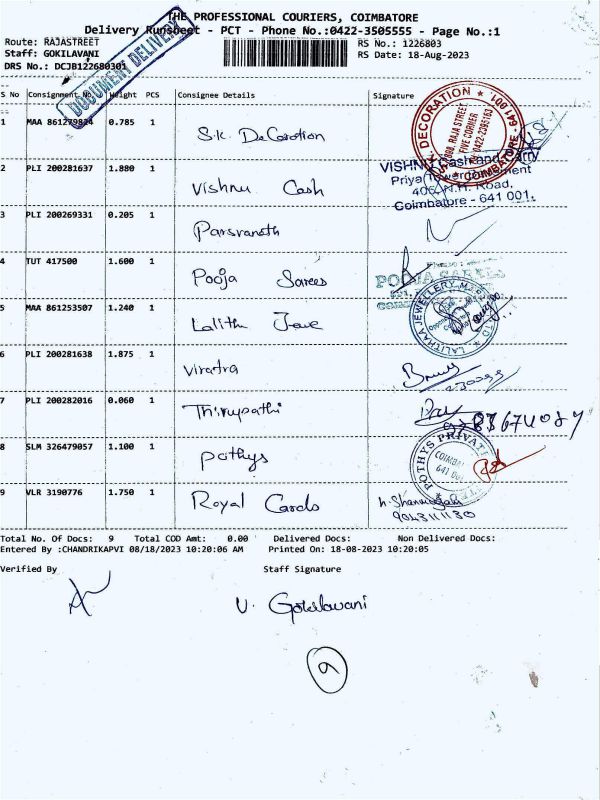 THE PROFESSIONAL COURIERS, COIMBATORE
Delivery Runsheet - PCT - Phone No.:0422-3505555 - Page No.:1
Route: RAJASTREET RS No.: 1226803
Staff: GOKILAVANI RS Date: 18-Aug-2023
DRS No.: DCJB122680301
DOCUMENT DELIVERY
S No Consignment No. Weight PCS Consignee Details Signature
1 MAA 861279824 0.785 1 S.K. Decoration
S.K. DECORATION COIMBATORE - 641 001.
RAJA STREET
FIVE CORNER
2 PLI 200281637 1.880 1 Vishnu Cash
VISHNU Cash and Carry
406, N.H. Road,
Coimbatore - 641 001.
3 PLI 200269331 0.205 1 Parsvanath
4 TUT 417500 1.600 1 Pooja Sarees
POOJA SAREES
5 MAA 861253507 1.240 1 Lalitha
LALITHAA JEWELLERY
6 PLI 200281638 1.875 1
7 PLI 200282016 0.060 1 Thirupathi
8 SLM 326479057 1.100 1 Pothys
POTHYS PRIVATE
641 001
9 VLR 3190776 1.750 1 Royal Cards
Total No. Of Docs: 9 Total COD Amt: 0.00 Delivered Docs: Non Delivered Docs:
Entered By :CHANDRIKAPVI 08/18/2023 10:20:06 AM Printed On: 18-08-2023 10:20:05
Verified By Staff Signature
V. Gokilavani
9